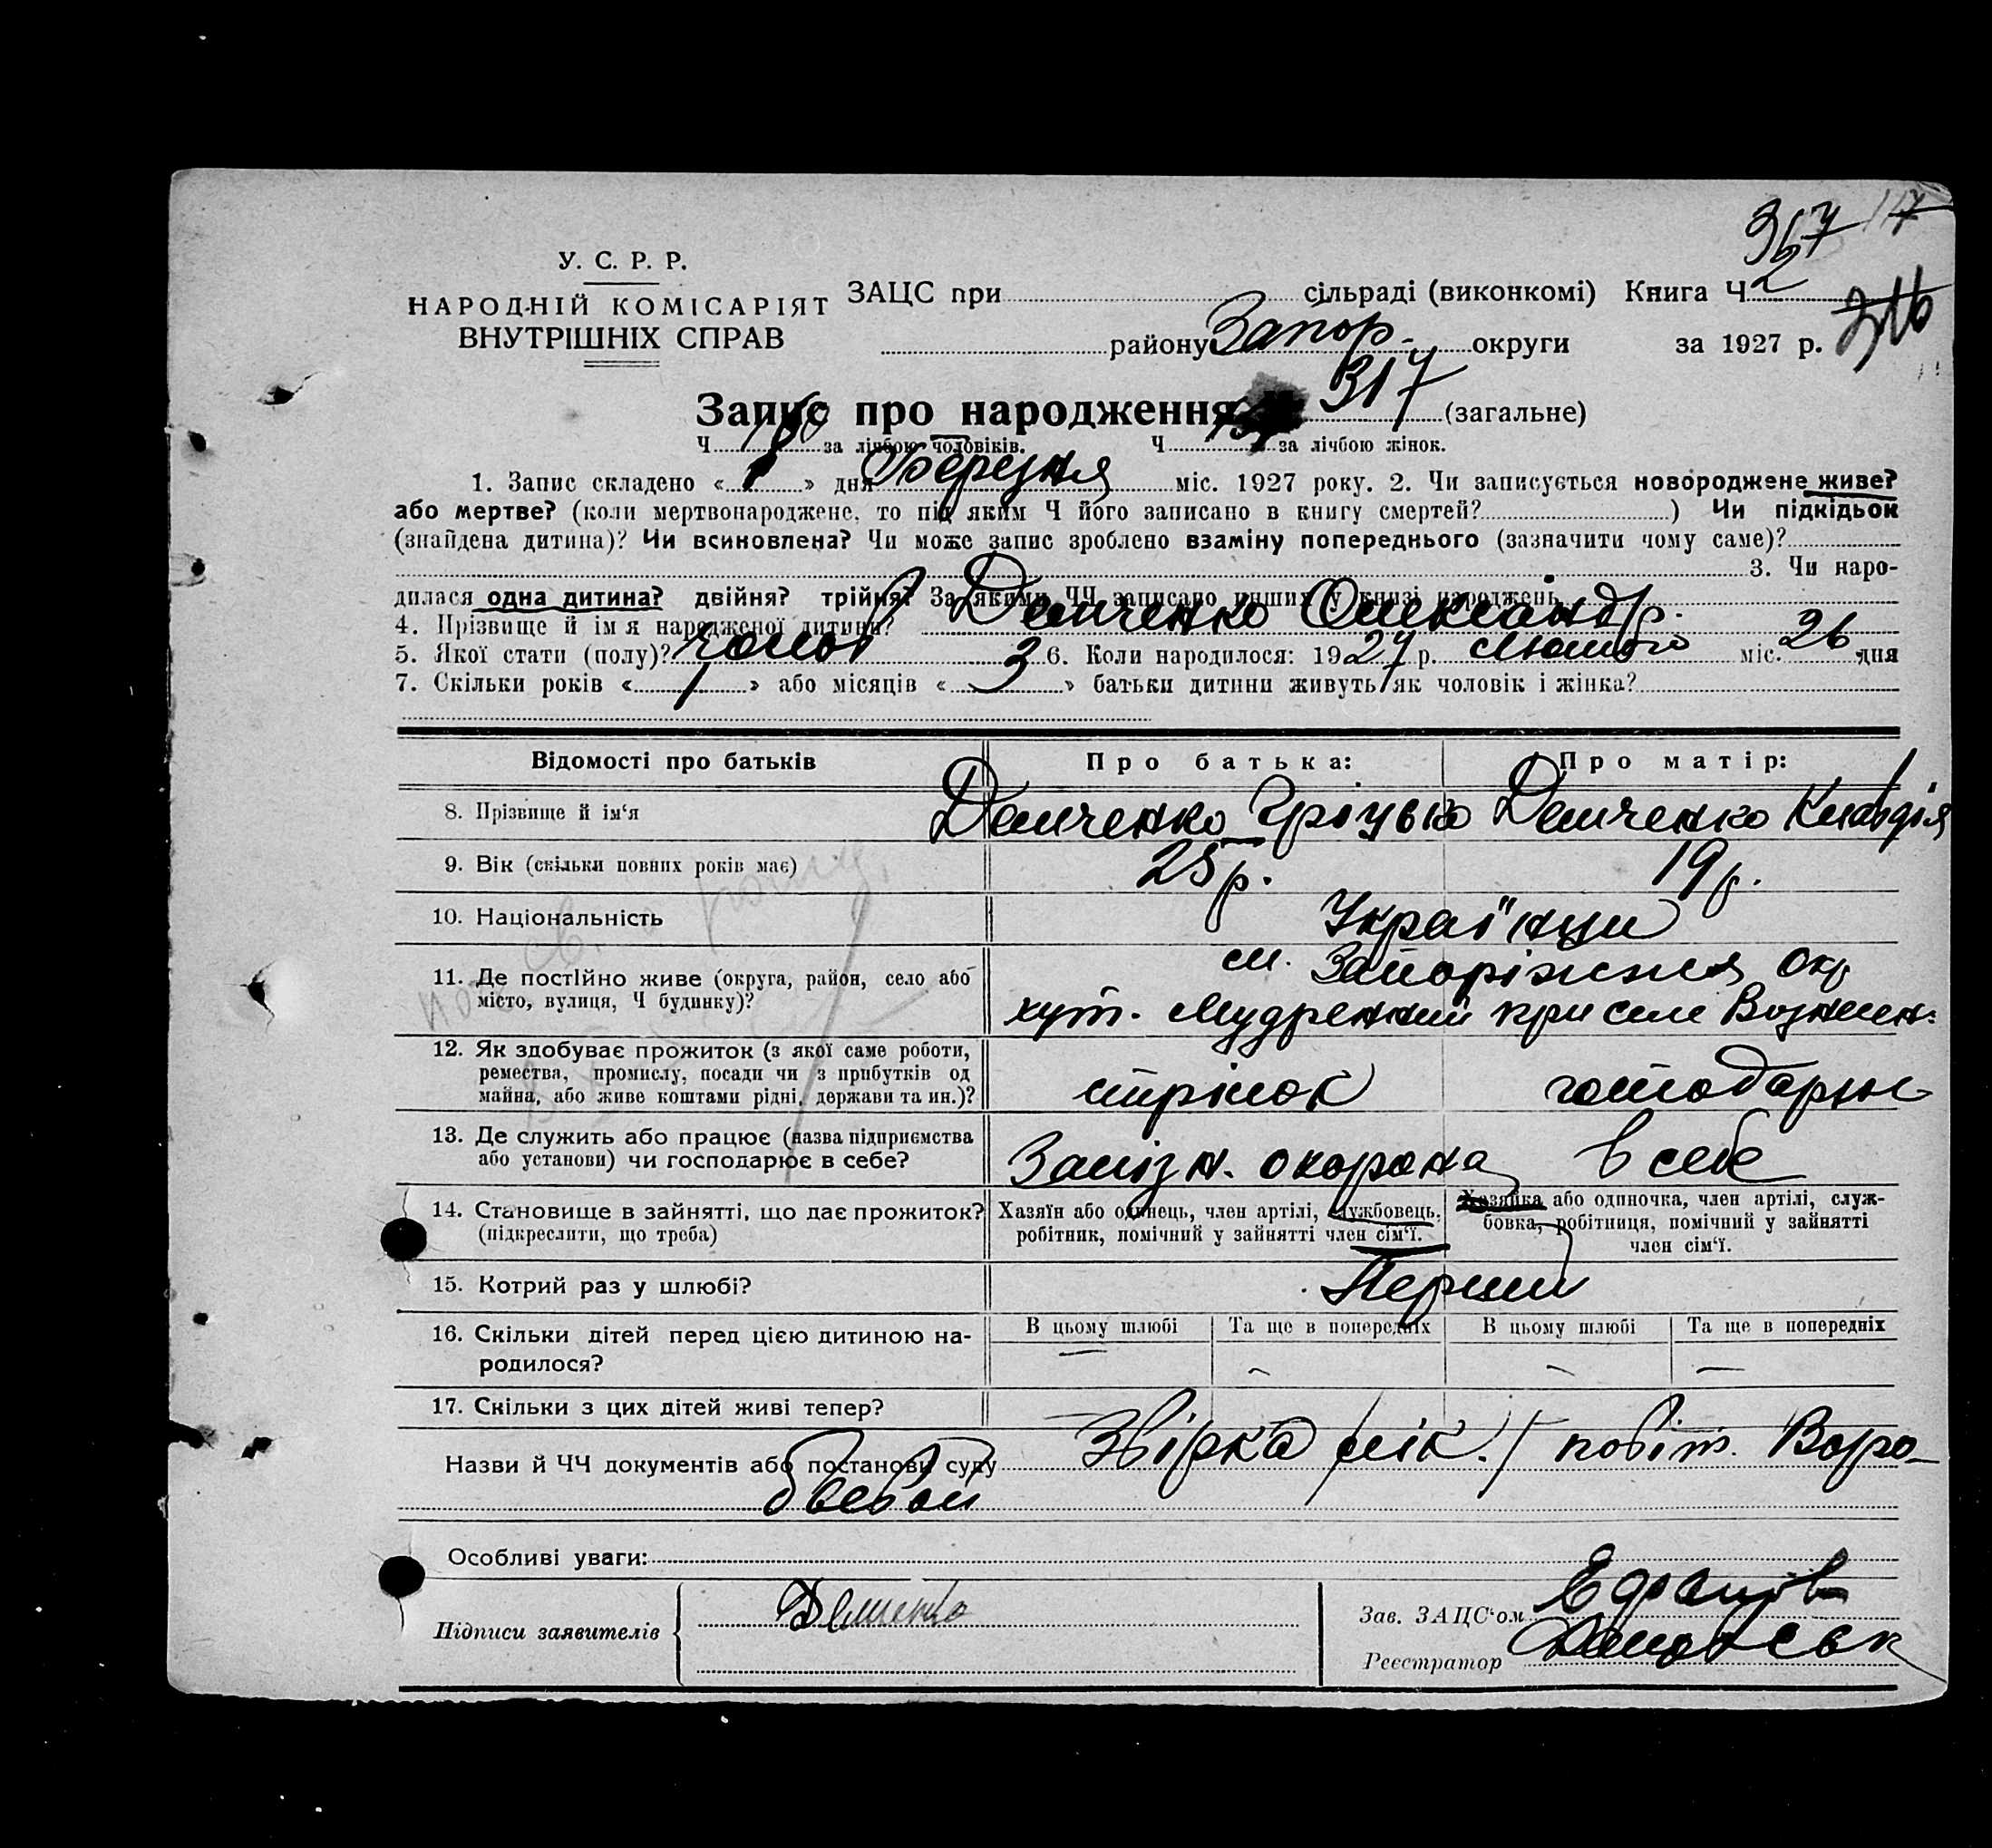 367
У. С. Р. Р.
НАРОДНІЙ КОМІСАРІЯТ
ВНУТРІШНІХ СПРАВ
ЗАЦС при сільраді (виконкомі) Книга Ч 2
району Запор. округи за 1927 р.
316
Запис про народження 317 (загальне)
Ч 160 за лічбою чоловіків. Ч за лічбою жінок.
1. Запис складено « 1 » дня Березня міс. 1927 року. 2. Чи записується новороджене живе?
або мертве? (коли мертвонароджене, то під яким Ч його записано в книгу смертей? ) Чи підкідьок
(знайдена дитина)? Чи всиновлена? Чи може запис зроблено взаміну попереднього (зазначити чому саме)?
3. Чи наро-
дилася одна дитина? двійня? трійня? За якими ЧЧ записано инших у книзі народжень
4. Прізвище й ім я народженої дитини? Демченко Олександр.
5. Якої стати (полу)? чолов 3 6. Коли народилося: 1927 р. Лютого міс. 26 дня
7. Скільки років « 1 » або місяців « » батьки дитини живуть як чоловік і жінка?
Відомості про батьків Про батька: Про матір:
8. Прізвище й ім‘я Демченко Грицько Демченко Клавдія
9. Вік (скільки повних років має) 25 р. 19 р.
10. Національність Україʼнци
11. Де постійно живе (округа, район, село або м. Запоріжжя окр
місто, вулиця, Ч будинку)? хут. Мудренний при селі Вознесен.
12. Як здобуває прожиток (з якої саме роботи,
ремества, промислу, посади чи з прибутків од
майна, або живе коштами рідні, держави та ин.)? стрілок господарює
13. Де служить або працює (назва підприємства
або установи) чи господарює в себе? Залізн. охорона в себе
14. Становище в зайнятті, що дає прожиток? Хазяїн або одинець, член артілі, службовець, Хазяйка або одиночка, член артілі, служ-
(підкреслити, що треба) робітник, помічний у зайнятті член сім‘ї. бовка, робітниця, помічний у зайнятті
член сім‘ї.
15. Котрий раз у шлюбі? Перший
16. Скільки дітей перед цією дитиною на- В цьому шлюбі Та ще в попередніх В цьому шлюбі Та ще в попередніх
родилося? — — — —
17. Скільки з цих дітей живі тепер? —
Назви й ЧЧ документів або постанови суду Звірка лік. повіт.
Особливі уваги:
Підписи заявителів Демченко Зав. ЗАЦС‘ом
Реєстратор